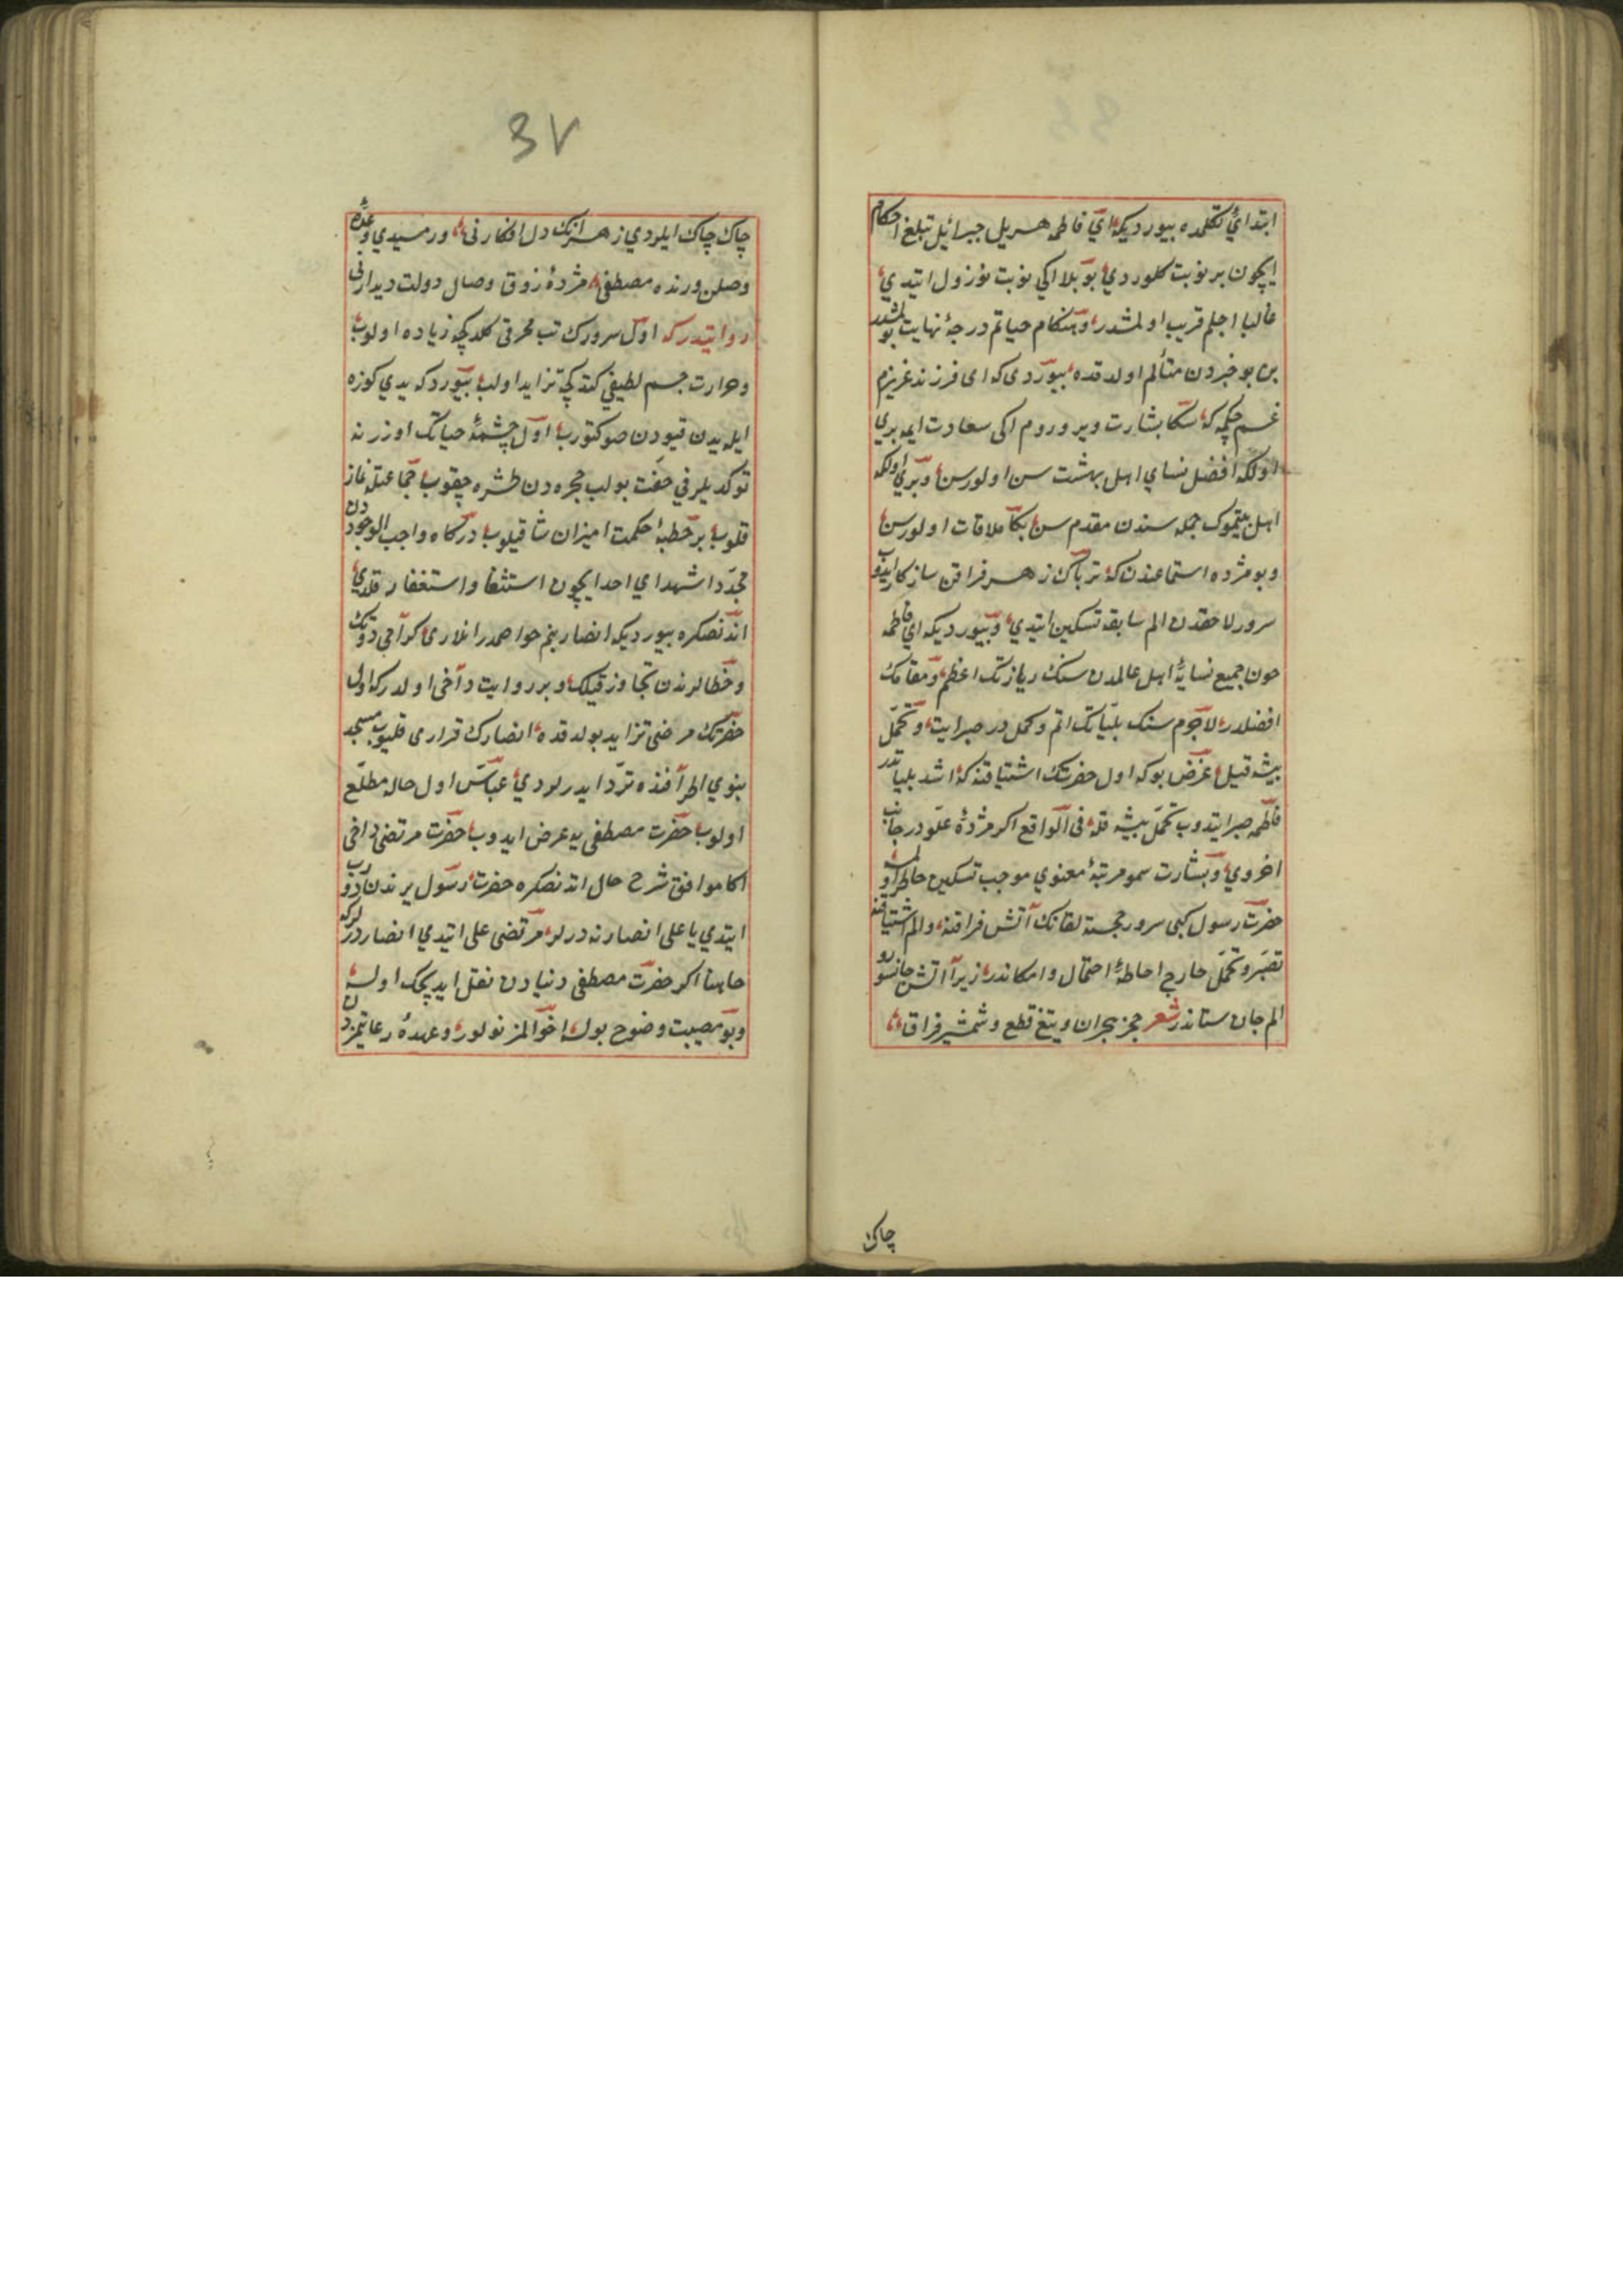 ابتدائ تكلمده بيورديكه اي فاطمه هر ييل جبرائيل تبلغ احكام
ايچون بر نوبت كلوردي بو ييلا ايكي نوبت نزول ايتدي
غالبا اجلم قريب اولمشدر وهنكام حياتم درجۀ نهايت بولمشدر
بن بو خبردن متألم اولدقده بيوردى كه اى فرزند عزيزم
غم چكمه كه سكا بشارت ويروروم ايكى سعادت ايله بري
اولكه افضل نساي اهل بهشت سن اولورسن وبري اولكه
اهل بيتموك جمله سندن مقدم سن بكا ملاقات اولورسن
وبو مژده استماعندن كه ترياك زهر فراقن سازكار ايدوب
سرور لاحقدن الم سابقه تسكين ايتدي وبيورديكه اي فاطمه
چون جميع نسايۀ اهل عالمدن سنك اعظم ومقامك
افضلدر لاجرم سنك بلياتك اتم وكمل در صبر ايت وتحمل
پيشه قيل غرض بو كه اول حضرتك اشتياقنه كه اشد بلياتدر
فاطمه صبر ايتدوب تحمل پيشه قله فى الواقع اكر مژدۀ علو درجات
اخروي وبشارت سمو مرتبۀ معنوي موجب تسكين خاطر اولمسه
حضرت رسول كبى سرور خجسته لقانك آتش فراقنه والم اشتياقنه
تصبر وتحمل خارج احاطۀ احتمال وامكاندر زيرا آتش جانسوز
الم جان ستاندر شعر خنجر هجران وتيغ قطع وشمشير فراق
چاك
٣٧
چاك چاك ايلردي زهرانك دل افكارنى ورمسيدي وعدۀ
وصلن ورنده مصطفى مژدۀ ذوق وصال دولت ديدارنى
روايتدركه اول سرورك تب محرقى كلدكچه زياده اولوب
وحرارت جسم لطيفي كتدكچه تزايد اولب بيوردكه يدي كوزه
ايله يدن قيودن صو كتورب اول چشمۀ حياتك اوزرنه
توكديلر في خفت بولب حجره دن طشره چقوب جماعتله نماز
قلوب بر خطبۀ حكمت اميز ان شا قيلوب دركاه واجب الوجوددن
مجددا شهداي احد ايچون استشفا واستغفار قلدي
اندنصكره بيورديكه انصار بنم خواصمدر انلارى كرامي دوتك
وخطالرندن تجاوز قيلك وبر روايت داخى اولدركه اول
حضرتك مرضى تزايد بولدقده انصارك قرارى قلميوب مسجد
نبوي اطرافنده تردد ايدرلردي عباس اول حاله مطلع
اولوب حضرت مصطفى يه عرض ايدوب حضرت مرتضى داخى
اكا موافق شرح حال اندنصكره حضرت رسول يرندن دورب
ايتدي يا على انصار نه درلر مرتضى على ايتدي انصار درلركه
حاشا اكر حضرت مصطفى دنيادن نقل ايدچك اولسه
وبو مصيبت وضوح بولسه احوالمز نولور وعهدۀ رعايتمزدن